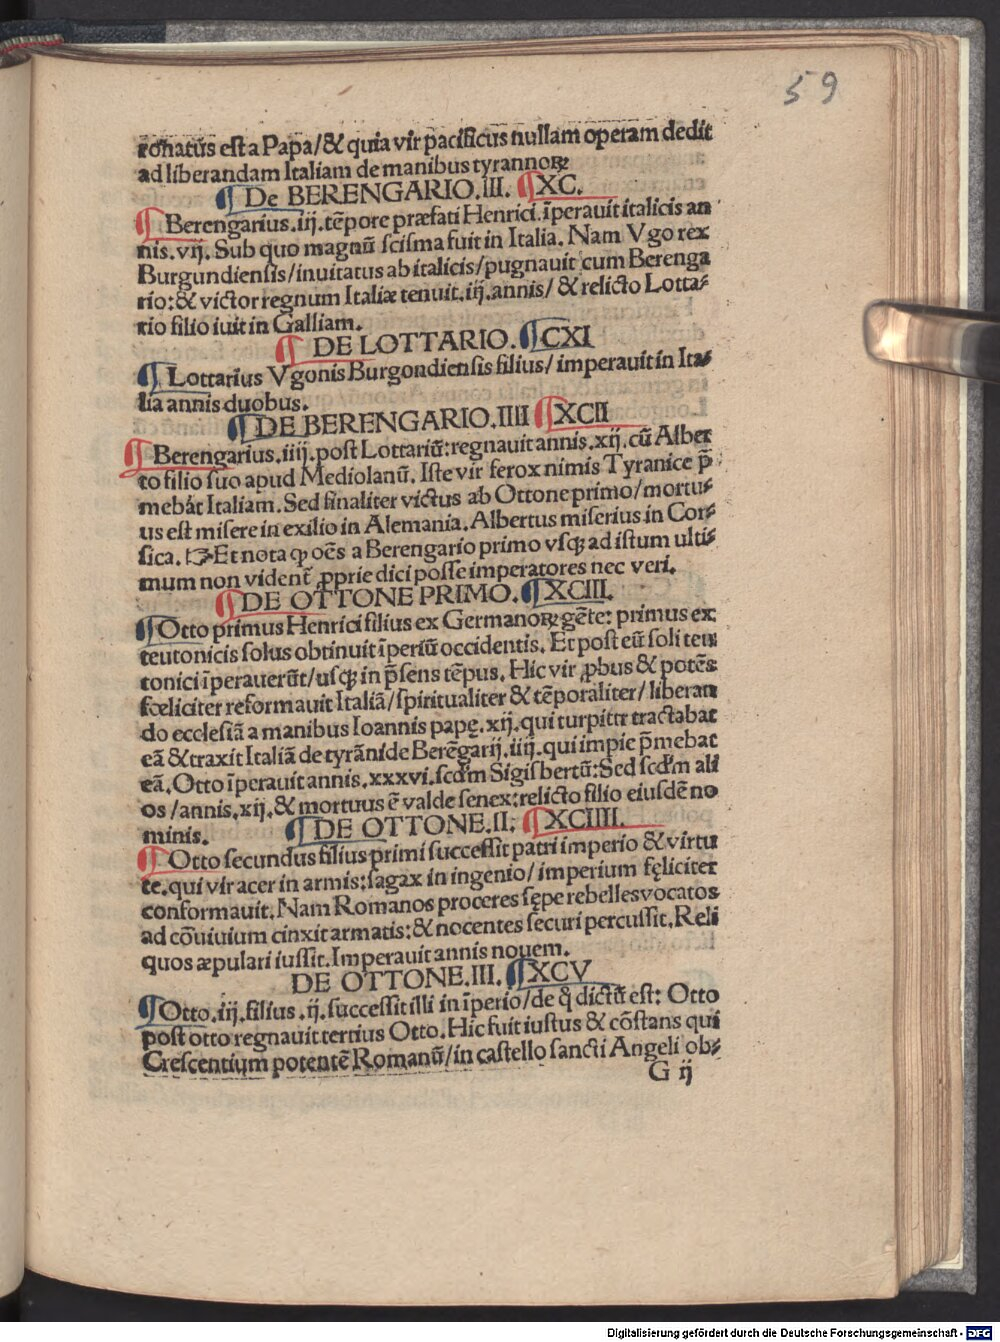 59
ronatus est a Papa/& quia vir pacificus nullam operam dedit
ad liberandam Italiam de manibus tyrannoꝝ
¶ De BERENGARIO.III. ¶XC.
¶ Berengarius.iij.tẽpore præfati Henrici.ĩperauit italicis an
nis.vij. Sub quo magnũ scisma fuit in Italia. Nam Vgo rex
Burgundiensis/inuitatus ab italicis/pugnauit cum Berenga
rio:& victor regnum Italiæ tenuit.iij.annis/ & relicto Lotta⸗
rio filio iuit in Galliam.
¶ DE LOTTARIO. ¶CXI
¶ Lottarius Vgonis Burgondiensis filius/ imperauit in Ita⸗
lia annis duobus.
¶DE BERENGARIO.IIII ¶XCII
¶ Berengarius.iiij.post Lottariũ:regnauit annis.xij.cũ Alber
to filio suo apud Mediolanũ. Iste vir ferox nimis Tyranice p̃
mebat Italiam. Sed finaliter victus ab Ottone primo/mortu⸗
us est misere in exilio in Alemania. Albertus miserius in Cor⸗
sica. ☞Et nota ꝙ oẽs a Berengario primo vsqꝫ ad istum ulti⸗
mum non vident̃ ꝓprie dici posse imperatores nec veri.
¶DE OTTONE PRIMO. ¶XCIII.
¶Otto primus Henrici filius ex Germanoꝝ gẽte: primus ex
teutonicis solus obtinuit ĩperiũ occidentis. Et post eũ soli teu
tonici ĩperauerũt/usqꝫ in p̃sens tẽpus. Hic vir ꝓbus & potẽs
fœliciter reformauit Italiã/spiritualiter & tẽporaliter/liberan
do ecclesiã a manibus Ioannis papę.xij.qui turpitr tractabat
eã & traxit Italiã de tyrãnide Berẽgarij.iiij.qui impie p̃mebat
eã. Otto ĩperauit annis.xxxvi.scd̃m Sigisbertũ:Sed scd̃m ali
os /annis.xij.& mortuus ẽ valde senex:relicto filio eiusdẽ no
minis. ¶DE OTTONE.II: ¶XCIIII.
¶ Otto secundus filius primi successit patri imperio & virtu
te.qui vir acer in armis:sagax in ingenio/ imperium fęliciter
conformauit. Nam Romanos proceres sępe rebelles vocatos
ad cõuiuium cinxit armatis:& nocentes securi percussit. Reli
quos æpulari iussit. Imperauit annis nouem.
DE OTTONE.III. ¶XCV
¶Otto.iij.filius .ij.successit illi in ĩperio/de q̃ dictũ est: Otto
post otto regnauit tertius Otto. Hic fuit iustus & cõstans qui
Crescentium potentẽ Romanũ/in castello sancti Angeli ob⸗
G ij
Digitalisierung gefördert durch die Deutsche Forschungsgemeinschaft - DFG